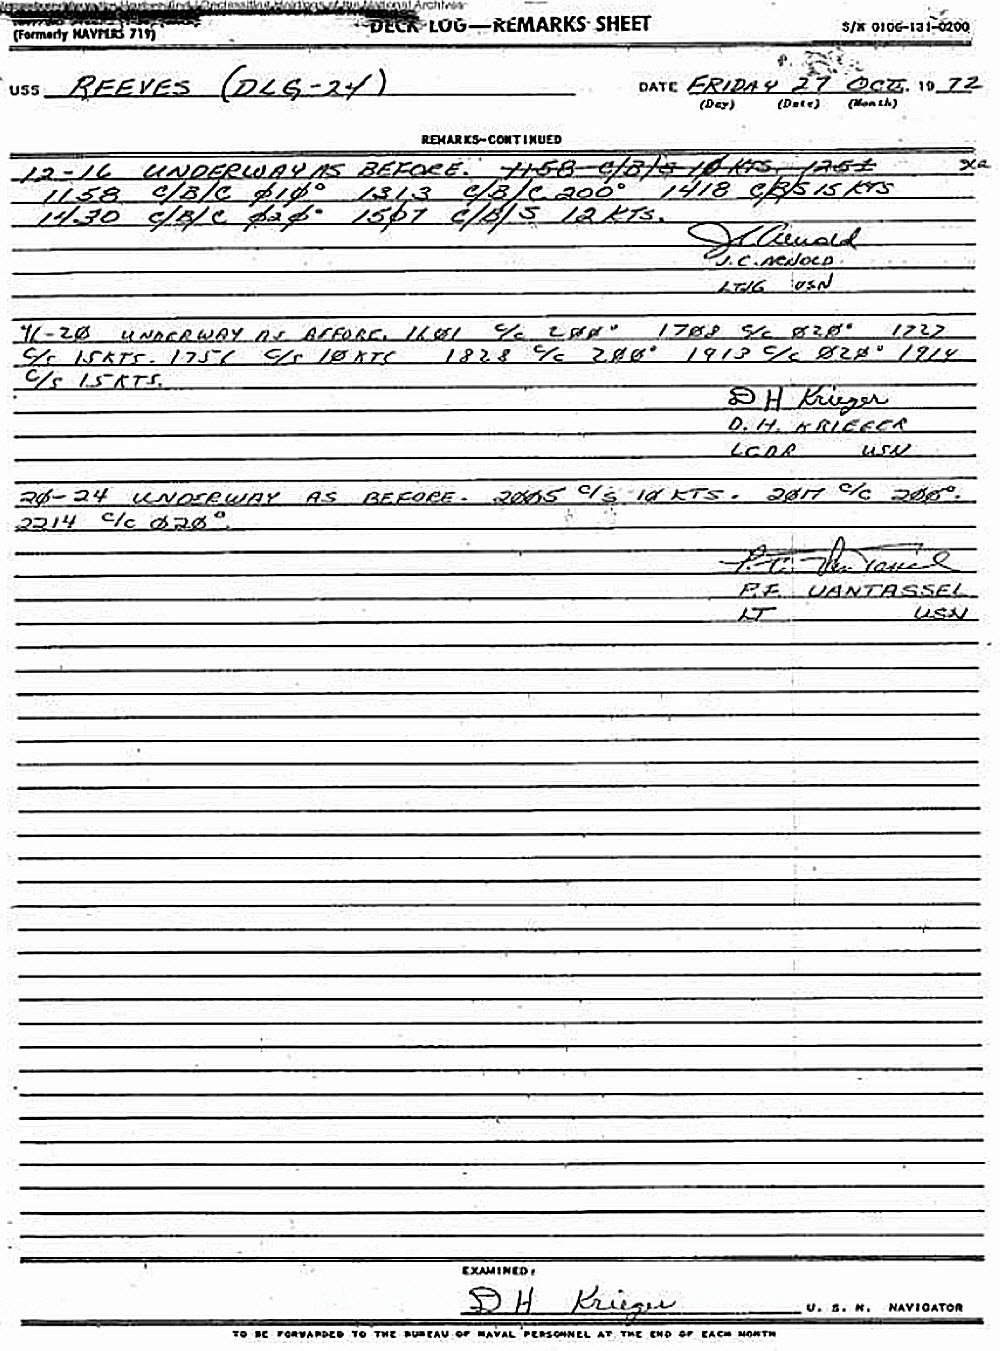 Holdings of the National Archives
(Formerly NAVPERS 719)
DECK LOG—REMARKS SHEET
S/N 0106-131-0200
USS REEVES (DLG-24)
DATE FRIDAY 27 OCT. 19 72
(Day) (Date) (Month)
REMARKS—CONTINUED
12-16 UNDERWAY AS BEFORE. 1158 C/B/S 10 KTS. 1251
1158 C/B/C Ø1Ø° 1313 C/B/C 200° 1418 C/B/S 15 KTS
1430 C/B/C Ø2Ø° 15Ø7 C/B/S 12 KTS.
J C Arnold
J. C. ARNOLD
LTJG USN
16-2Ø UNDERWAY AS BEFORE. 16Ø1 C/C 2ØØ° 17Ø8 C/C Ø2Ø° 1727
C/S 15 KTS. 1756 C/S 1Ø KTS 1828 C/C 2ØØ° 1913 C/C Ø2Ø° 1914
C/S 15 KTS.
D H Krieger
D. H. KRIEGER
LCDR USN
2Ø-24 UNDERWAY AS BEFORE. 2ØØ5 C/S 1Ø KTS. 2Ø17 C/C 2ØØ°.
2214 C/C Ø2Ø°.
P.E. VanTassel
P.E. VANTASSEL
LT USN
EXAMINED:
D H Krieger U. S. N. NAVIGATOR
TO BE FORWARDED TO THE BUREAU OF NAVAL PERSONNEL AT THE END OF EACH MONTH